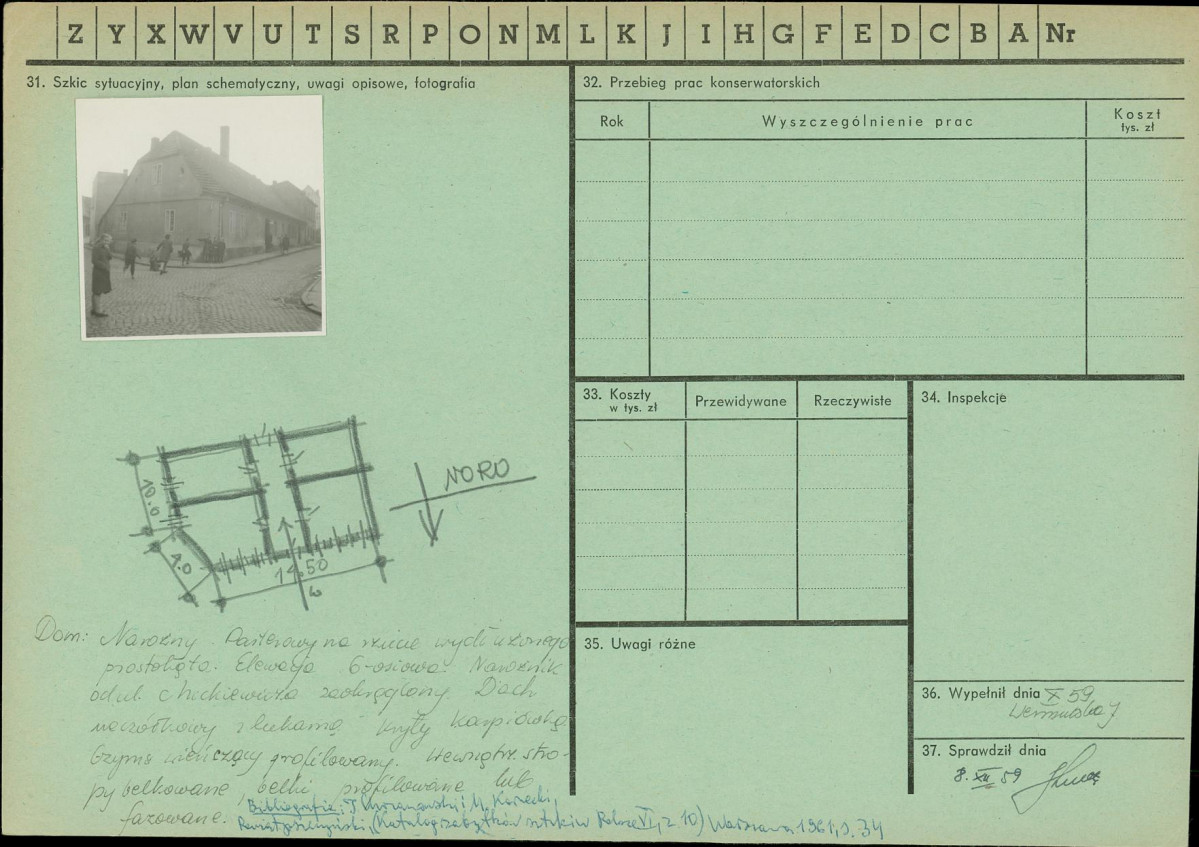 Z Y X W V U T S R P O N M L K J I H G F E D C B A Nr
31. Szkic sytuacyjny, plan schematyczny, uwagi opisowe, fotografia
NORD
10.0
1.0
14.50
Dom: Narożny. Parterowy na rzucie wydłużonego
prostokąta. Elewacja 6-osiowa. Narożnik
od ul. Mickiewicza zaokrąglony. Dach
naczółkowy z lukarną kryty karpiówką
Gzyms wieńczący profilowany. Wewnątrz stro-
py belkowane, belki profilowane lub
fazowane.
Bibliografia: T. Chrzanowski i M. Kornecki,
Powiat prudnicki, (Katalog zabytków sztuki w Polsce VI, z. 10) Warszawa 1961, s. 34
32. Przebieg prac konserwatorskich
Rok Wyszczególnienie prac Koszt tys. zł
33. Koszty w tys. zł Przewidywane Rzeczywiste
34. Inspekcje
35. Uwagi różne
36. Wypełnił dnia X 59
37. Sprawdził dnia
8. XII. 59